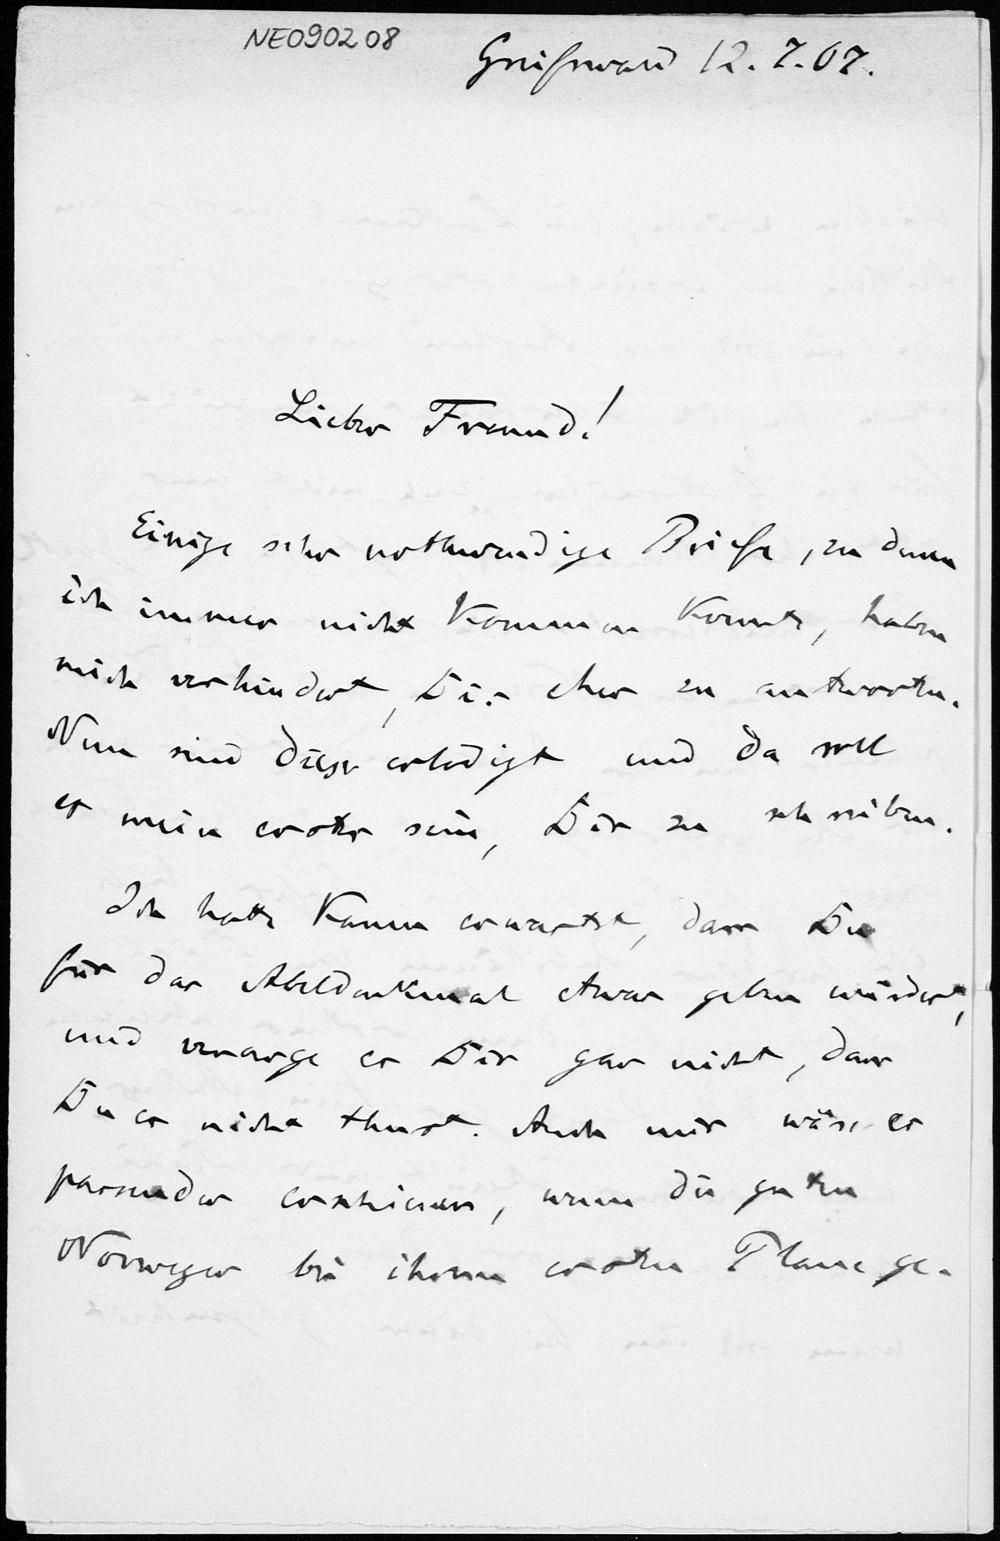 NE090208
Greifswald 12.7.07.
Lieber Freund!
Einige sehr nothwendige Briefe, zu denen
ich immer nicht kommen konnte, haben
mich verhindert, Dir eher zu antworten.
Nun sind diese erledigt und da soll
es mein erster sein, Dir zu schreiben.
Ich hatte kaum erwartet, dass Du
für das Abeldenkmal etwas geben würdest,
und verarge es Dir gar nicht, dass
Du es nicht thust. Auch mir wäre es
passender erschienen, wenn die guten
Norweger bei ihrem ersten Plane ge-